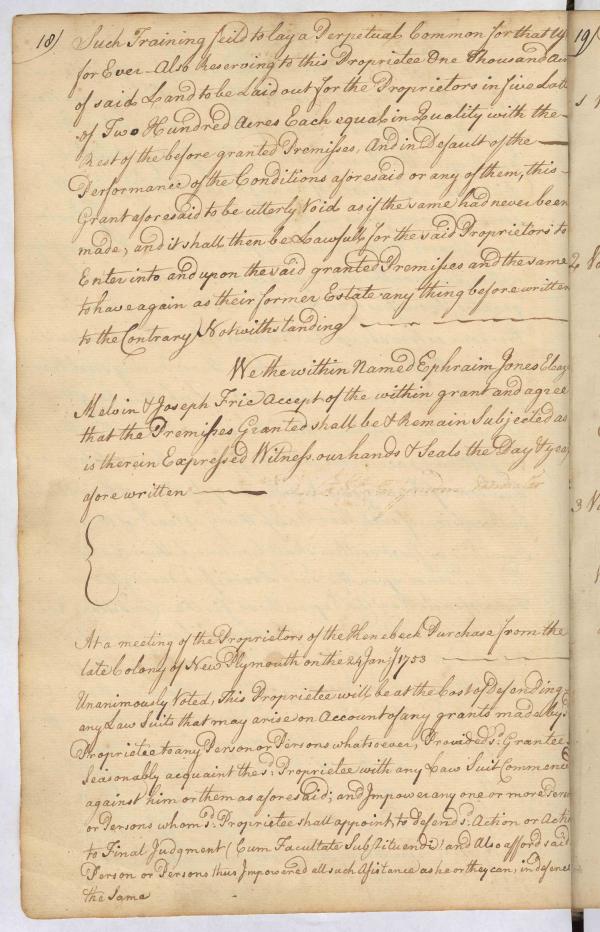 18/ Such Training feild to lay a Perpetual Common for that Use
for Ever – Also Reserving to this Proprietee One Thousand Acres
of said Land to be Laid out for the Proprietors in five Lotts
of Two Hundred Acres Each equal in Quality with the
Rest of the before granted Premisses, And in Default of the
Performance of the Conditions aforesaid or any of them, this
Grant aforesaid to be utterly Void as if the same had never been
made, and it shall then be Lawfull for the said Proprietors to
Enter into and upon the said granted Premisses and the same
to have again as their former Estate any thing before written
to the Contrary Notwithstanding)
We the within Named Ephraim Jones Eleaz
Melvin & Joseph Frie Accept of the within grant and agree
that the Premisses Granted shall be & Remain Subjected as
is therein Expressed Witness our hands & Seals the Day & year
afore written
{
At a meeting of the Proprietors of the Kenebeck Purchase from the
late Colony of New Plymouth on the 24 Jany 1753
Unanimously Voted, This Proprietee will be at the Cost of Defending
any Law Suits that may arise on Account of any grants made by sd
Proprietee to any Person or Persons whatsoever, Provided sd. Grantee
Seasonably acquaint the sd. Proprietee with any Law Suit Commenced
against him or them as aforesaid; and Impower any one or more Person
or Persons whom sd. Proprietee shall appoint, to defend sd. Action or Actio
to Final Judgment (Cum Facultate Substituendi) and Also afford said
Person or Persons thus Impowered all such Assistance as he or they can, in defence
the Same
19/
2
3